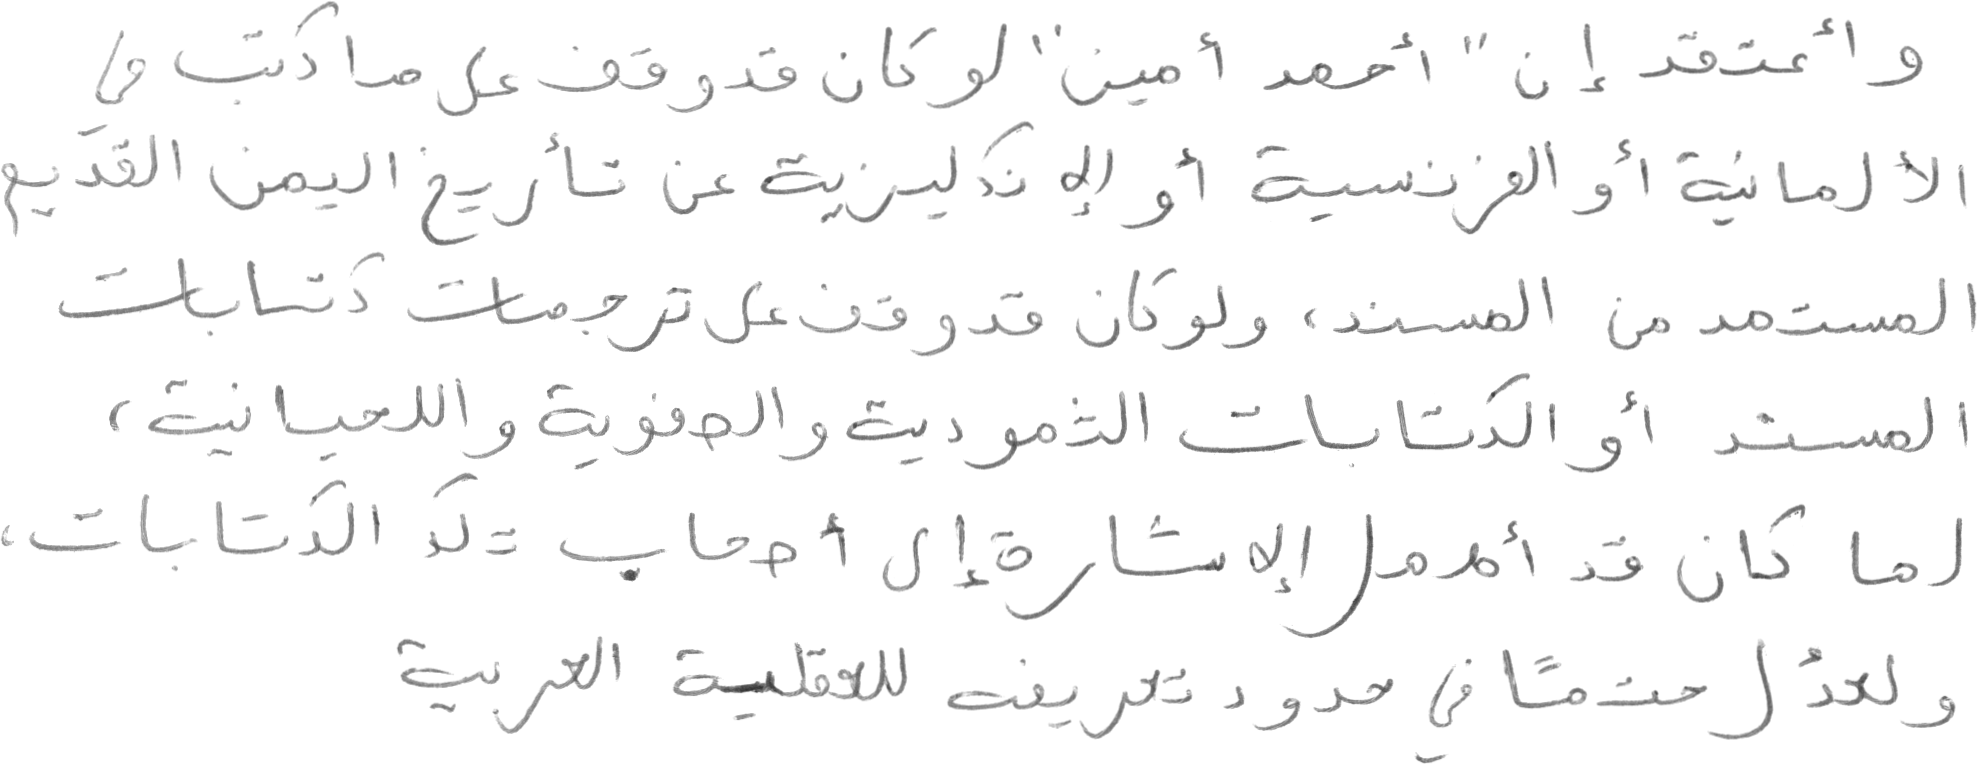 وأعتقد إن "أحمد أمين" لو كان قد وقف على ما كتب في
الألمانية أو الفرنسية أو الإنكليزية عن تأريخ اليمن القديم
المستمد من المسند، ولو كان قد وقف على ترجمات كتابات
المسند أو الكتابات الثمودية والصفوية واللحيانية،
لما كان قد أهمل الإشارة إلى أصحاب تلك الكتابات،
ولعدّل حتمًا في حدود تعريفه للعقلية العربية